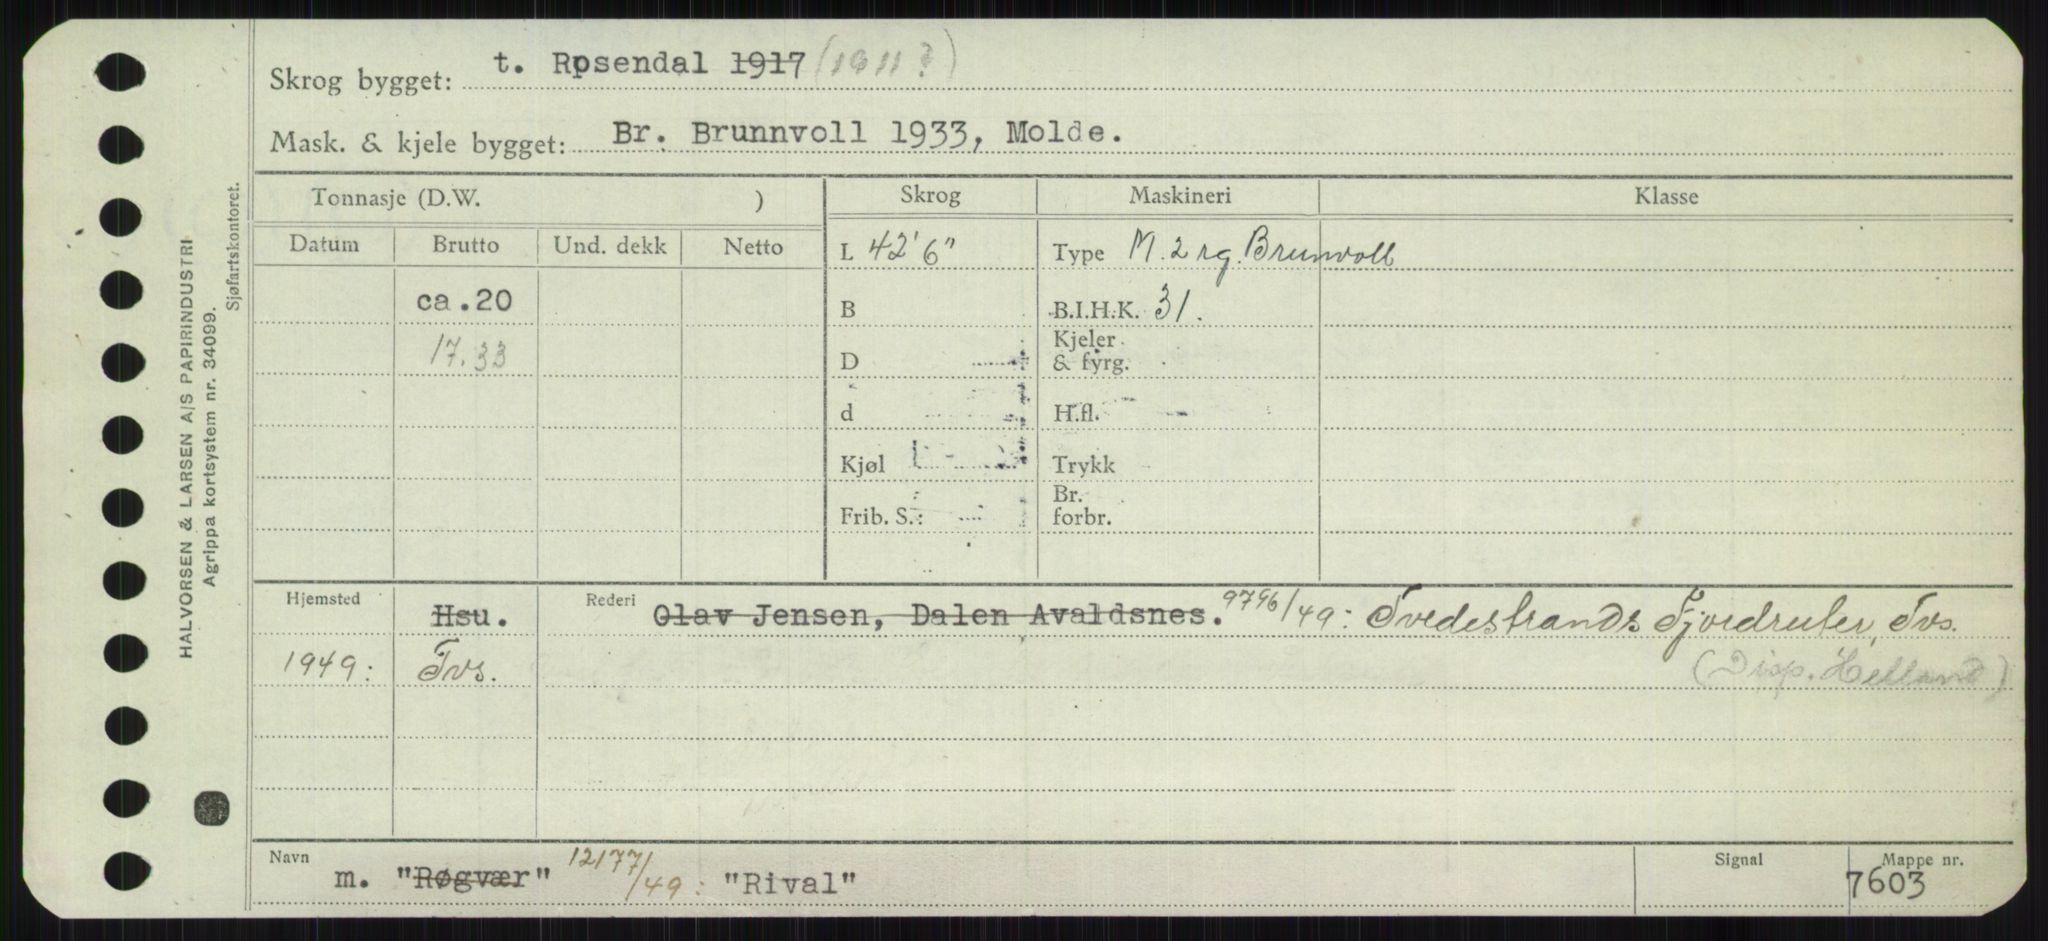 Skrog bygget: t. Rosendal 1917 (1911?)
Mask. & kjele bygget: Br. Brunnvoll 1933, Molde.
Tonnasje (D.W. ) Skrog Maskineri Klasse
Datum Brutto Und. dekk Netto L 42' 6" Type M. 2 rg. Brunvoll
ca.20 B B.I.H.K. 31.
17.33 D Kjeler & fyrg.
d H.fl.
Kjøl Trykk
Frib. S.: Br. forbr.
Hjemsted Hsu. Rederi Olav Jensen, Dalen Avaldsnes. 9796/49: Tvedestrands Fjordruter, Tvs.
1949: Tvs. (Disp. Helland)
Navn m. "Røgvær" 12177/49: "Rival" Signal Mappe nr. 7603
HALVORSEN & LARSEN A/S PAPIRINDUSTRI
Agrippa kortsystem nr. 34099.
Sjøfartskontoret.